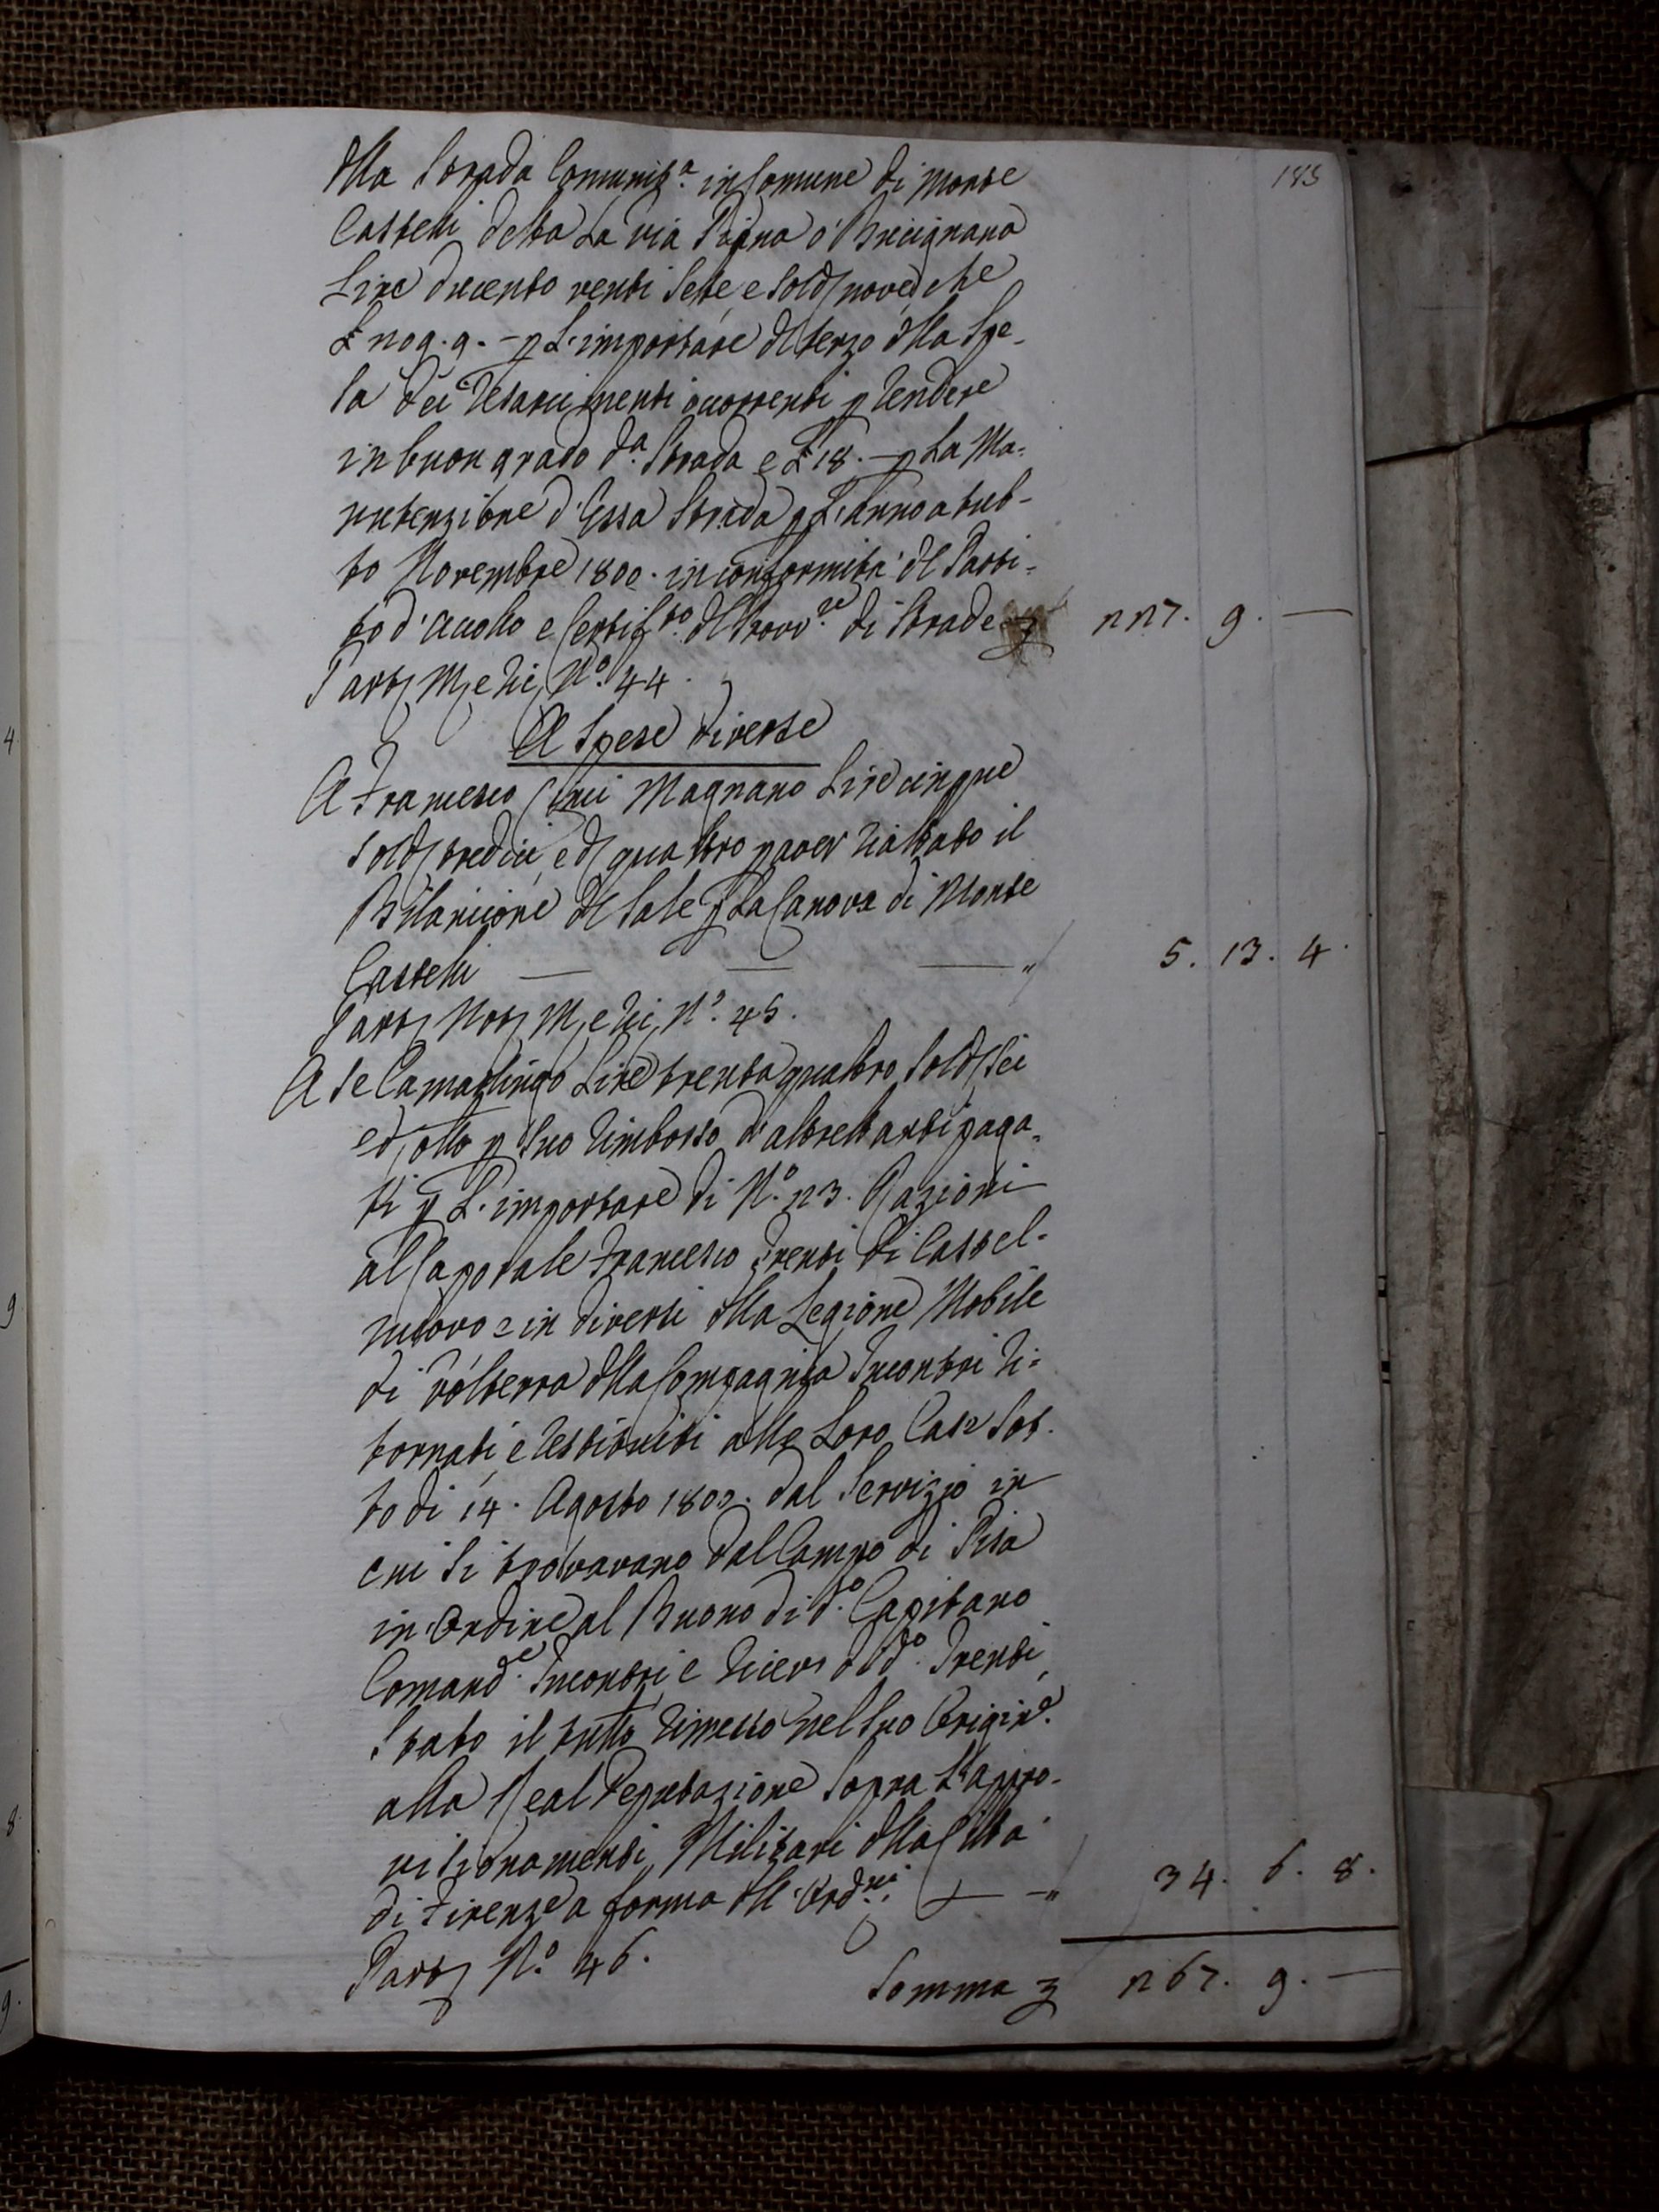 183
dlla Strada Comunit.a in Comune di Monte
Castelli detta La via Piana o Bucignana
Lire ducento venti sette, e sold nove, che
£ 209. 9. - p L'importare dl terzo dlla Spe-
sa dei resarcimenti occorrenti p rendere
in buon grado d.a Strada e £ 18. - p La Ma=
nutenzione d'Essa Strada p L'anno a tut-
to Novembre 1800. in conformità dl Parti-
to d'accollo e Certif.to dl Provv.re di Strade 227. 9. —
Part M, e ri, N.o 44.
A Spese diverse
A Francesco Cini Magnano Lire cinque
sold tredici, e d quattro p aver riattato il
Bilancione dl Sale p La Canova di Monte
Castelli — — — " 5. 13. 4.
Part Not M, e ri, N.o 45.
A Se Camarlingo Lire trenta quattro, sold sei
e d, otto p suo rimborso d'altrettanti paga-
ti p L'importare di N.o 23. Razioni
al Caporale Francesco Trenti di Castel-
nuovo e in diversi dlla Legione Nobile
di Volterra dlla Compagnia Incontri ri=
tornati, e restituiti alle Loro Case Sot-
to di 14. Agosto 1800. dal Servizio in
cui si trovavano dal Campo di Pisa
in Ordine al Buono di d.o Capitano
Comand.e Incontri e ricev. di d.o Trenti,
Stato il tutto rimesso nel suo Origin.e
alla Real Deputazione Sopra L'appro-
visionamenti Militari dlla Città
di Firenze a forma dll'Ord.ni — — " 34. 6. 8.
Part N.o 46.
Somma 267. 9. —
4
9
8
9.